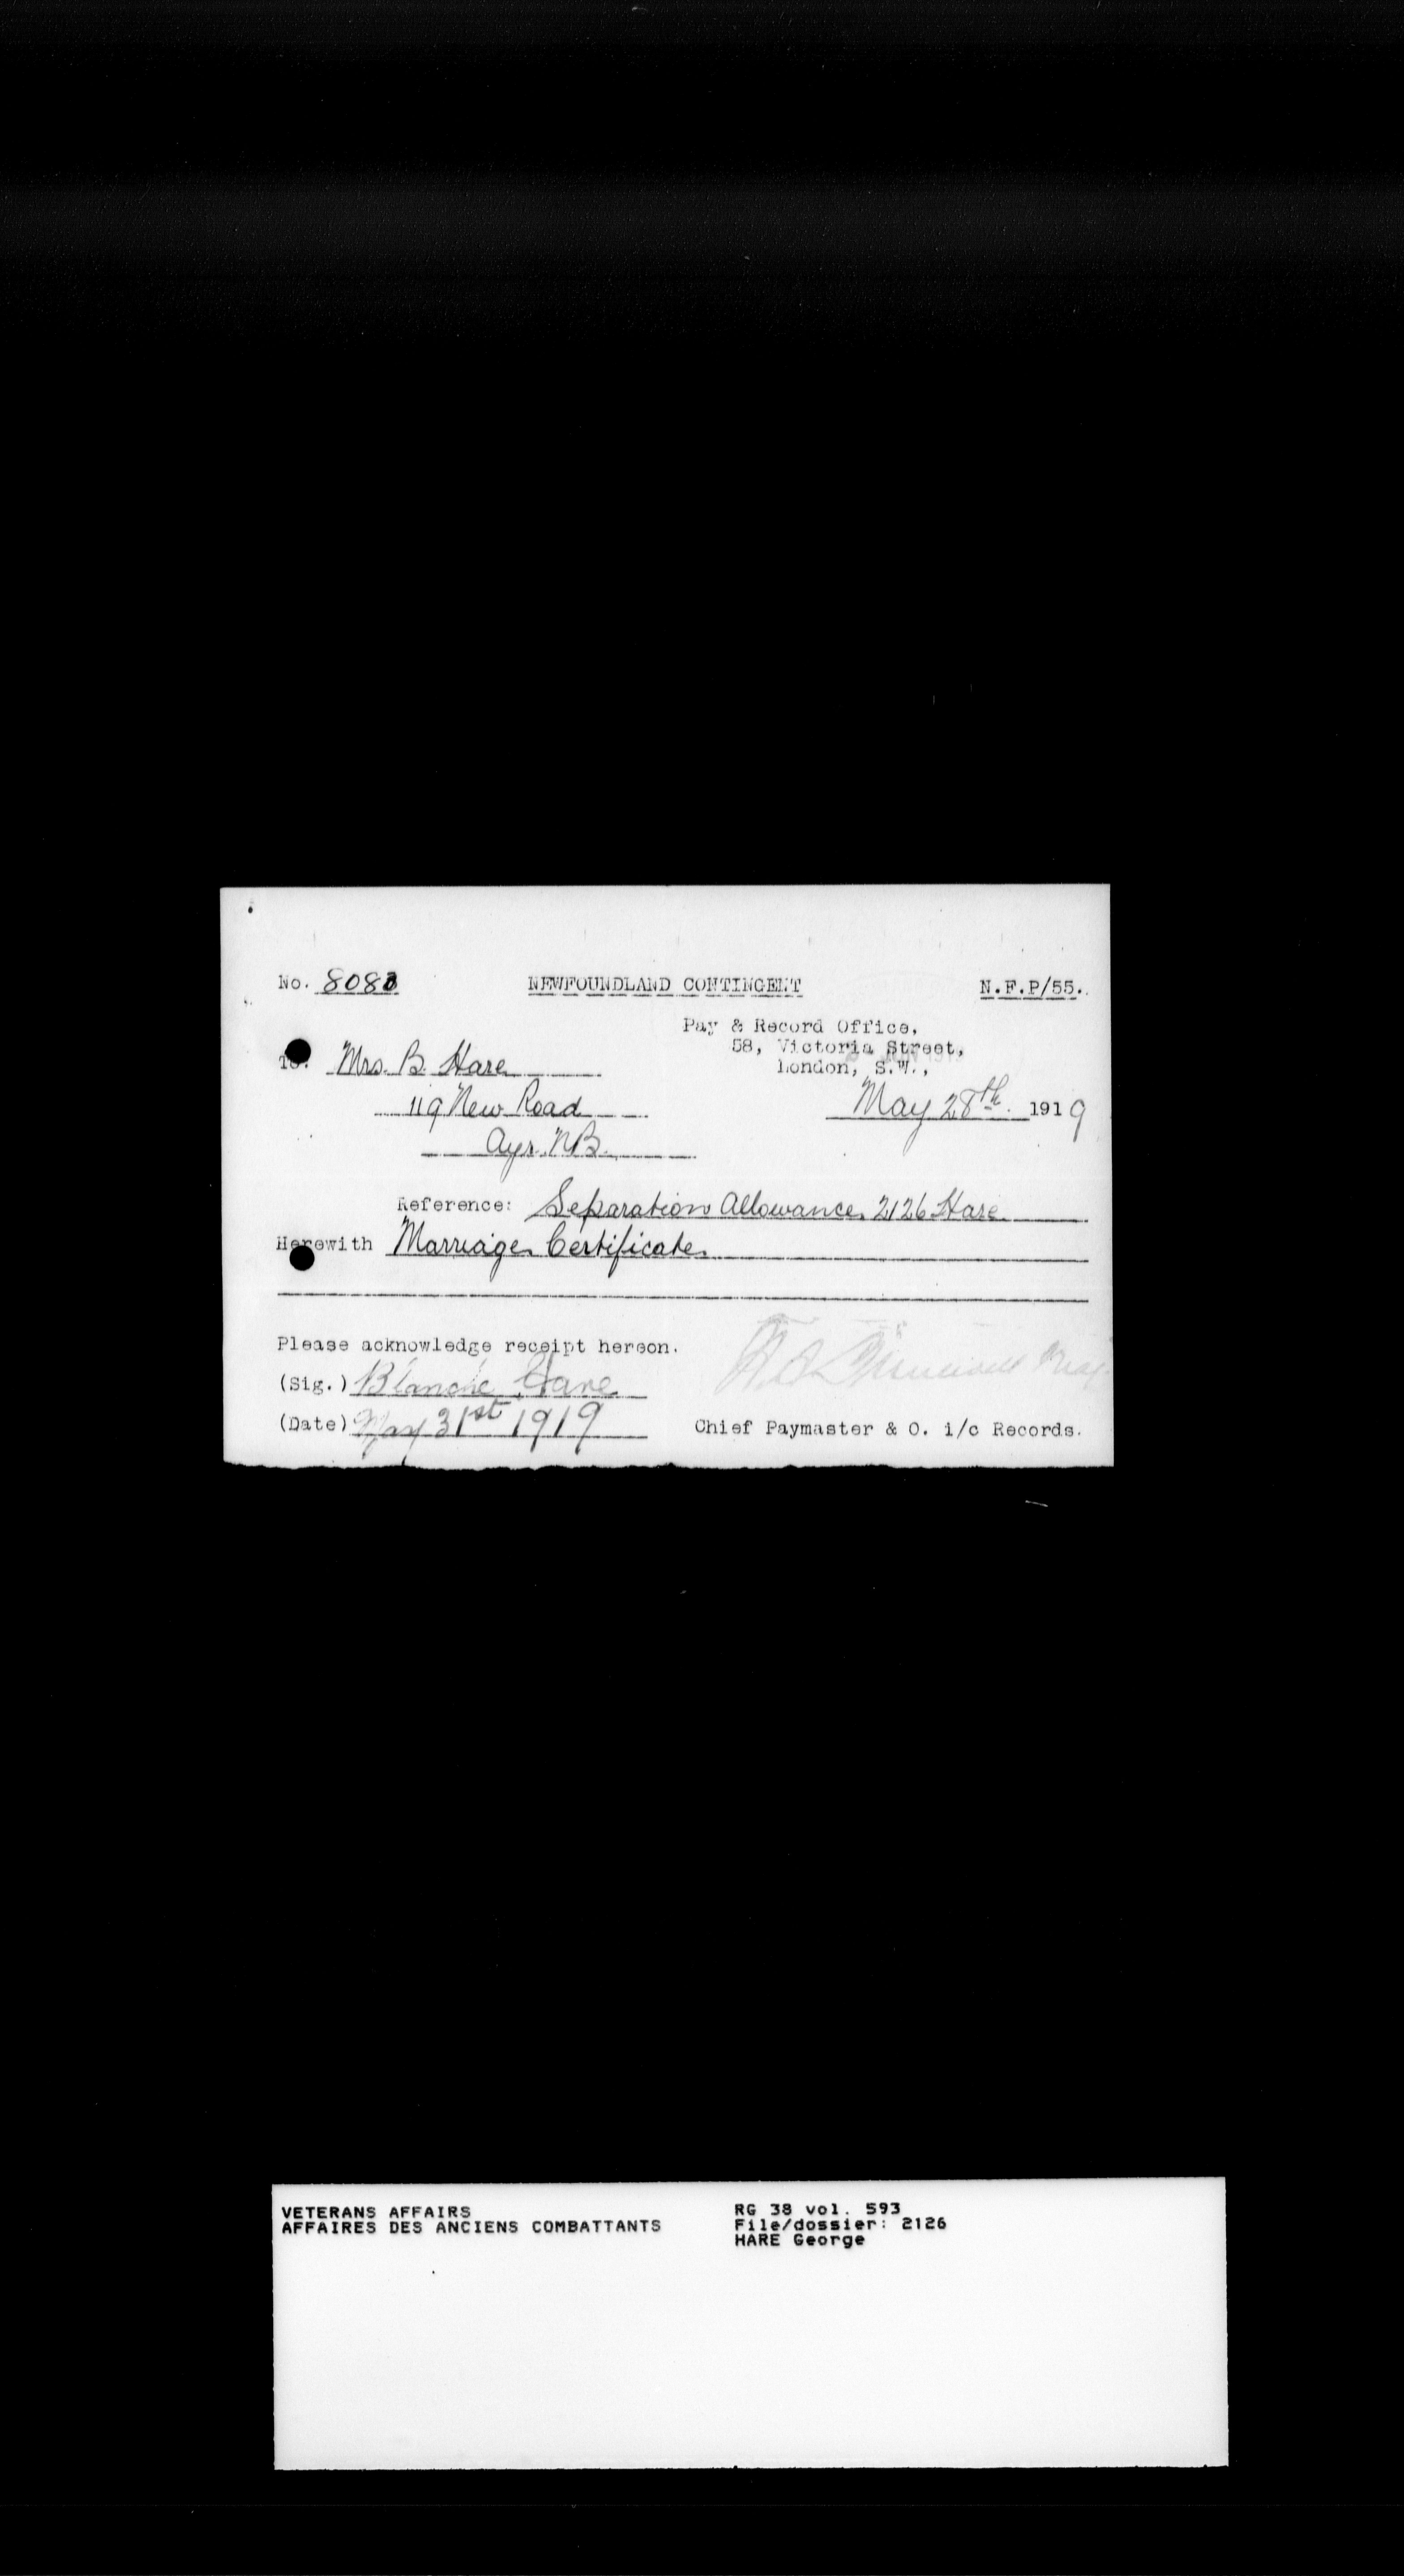 No. 8083 NEWFOUNDLAND CONTINGENT N.F.P/55.
Pay & Record Office,
58, Victoria Street,
London, S.W.,
To. Mrs. B. Hare
119 New Road
May 28th 1919
Ayr. N.B.
Reference: Separation Allowance 2126 Hare
Herewith Marriage Certificate
Please acknowledge receipt hereon.
(Sig.) Blanche Hare
(Date) May 31st 1919
Chief Paymaster & O. i/c Records.
VETERANS AFFAIRS
AFFAIRES DES ANCIENS COMBATTANTS
RG 38 vol. 593
File/dossier: 2126
HARE George